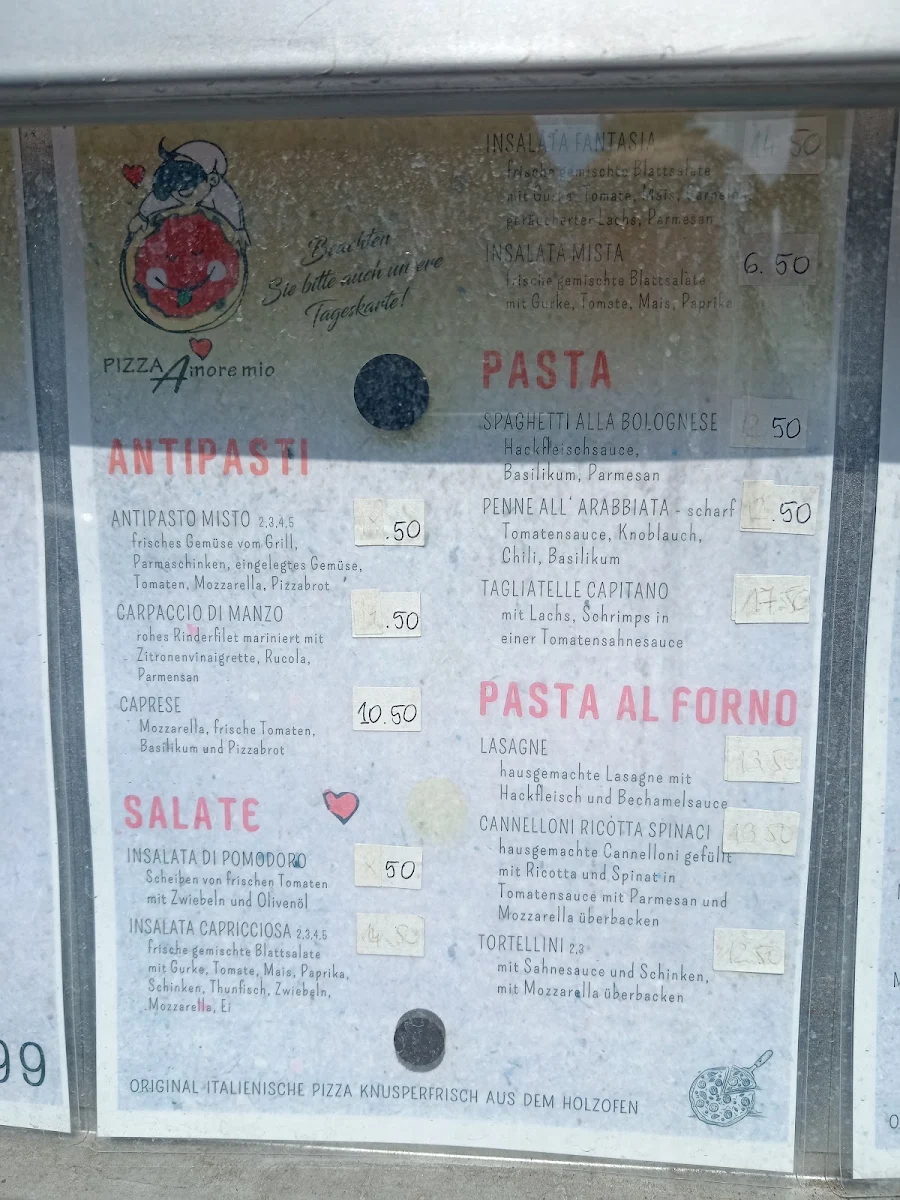 Beachten
Sie bitte auch unsere
Tageskarte!
PIZZA Amore mio
ANTIPASTI
ANTIPASTO MISTO 2,3,4,5 .50
frisches Gemüse vom Grill,
Parmaschinken, eingelegtes Gemüse,
Tomaten, Mozzarella, Pizzabrot
CARPACCIO DI MANZO .50
rohes Rinderfilet mariniert mit
Zitronenvinaigrette, Rucola,
Parmensan
CAPRESE 10.50
Mozzarella, frische Tomaten,
Basilikum und Pizzabrot
SALATE
INSALATA DI POMODORO 50
Scheiben von frischen Tomaten
mit Zwiebeln und Olivenöl
INSALATA CAPRICCIOSA 2,3,4,5 14.50
frische gemischte Blattsalate
mit Gurke, Tomate, Mais, Paprika,
Schinken, Thunfisch, Zwiebeln,
Mozzarella, Ei
INSALATA FANTASIA 14.50
frische gemischte Blattsalate
mit Gurke, Tomate, Mais,
geräucherter Lachs, Parmesan
INSALATA MISTA 6.50
frische gemischte Blattsalate
mit Gurke, Tomate, Mais, Paprika
PASTA
SPAGHETTI ALLA BOLOGNESE 50
Hackfleischsauce,
Basilikum, Parmesan
PENNE ALL' ARABBIATA - scharf .50
Tomatensauce, Knoblauch,
Chili, Basilikum
TAGLIATELLE CAPITANO 17.50
mit Lachs, Schrimps in
einer Tomatensahnesauce
PASTA AL FORNO
LASAGNE 13.50
hausgemachte Lasagne mit
Hackfleisch und Bechamelsauce
CANNELLONI RICOTTA SPINACI 13.50
hausgemachte Cannelloni gefüllt
mit Ricotta und Spinat in
Tomatensauce mit Parmesan und
Mozzarella überbacken
TORTELLINI 2,3 12.50
mit Sahnesauce und Schinken,
mit Mozzarella überbacken
ORIGINAL ITALIENISCHE PIZZA KNUSPERFRISCH AUS DEM HOLZOFEN
99